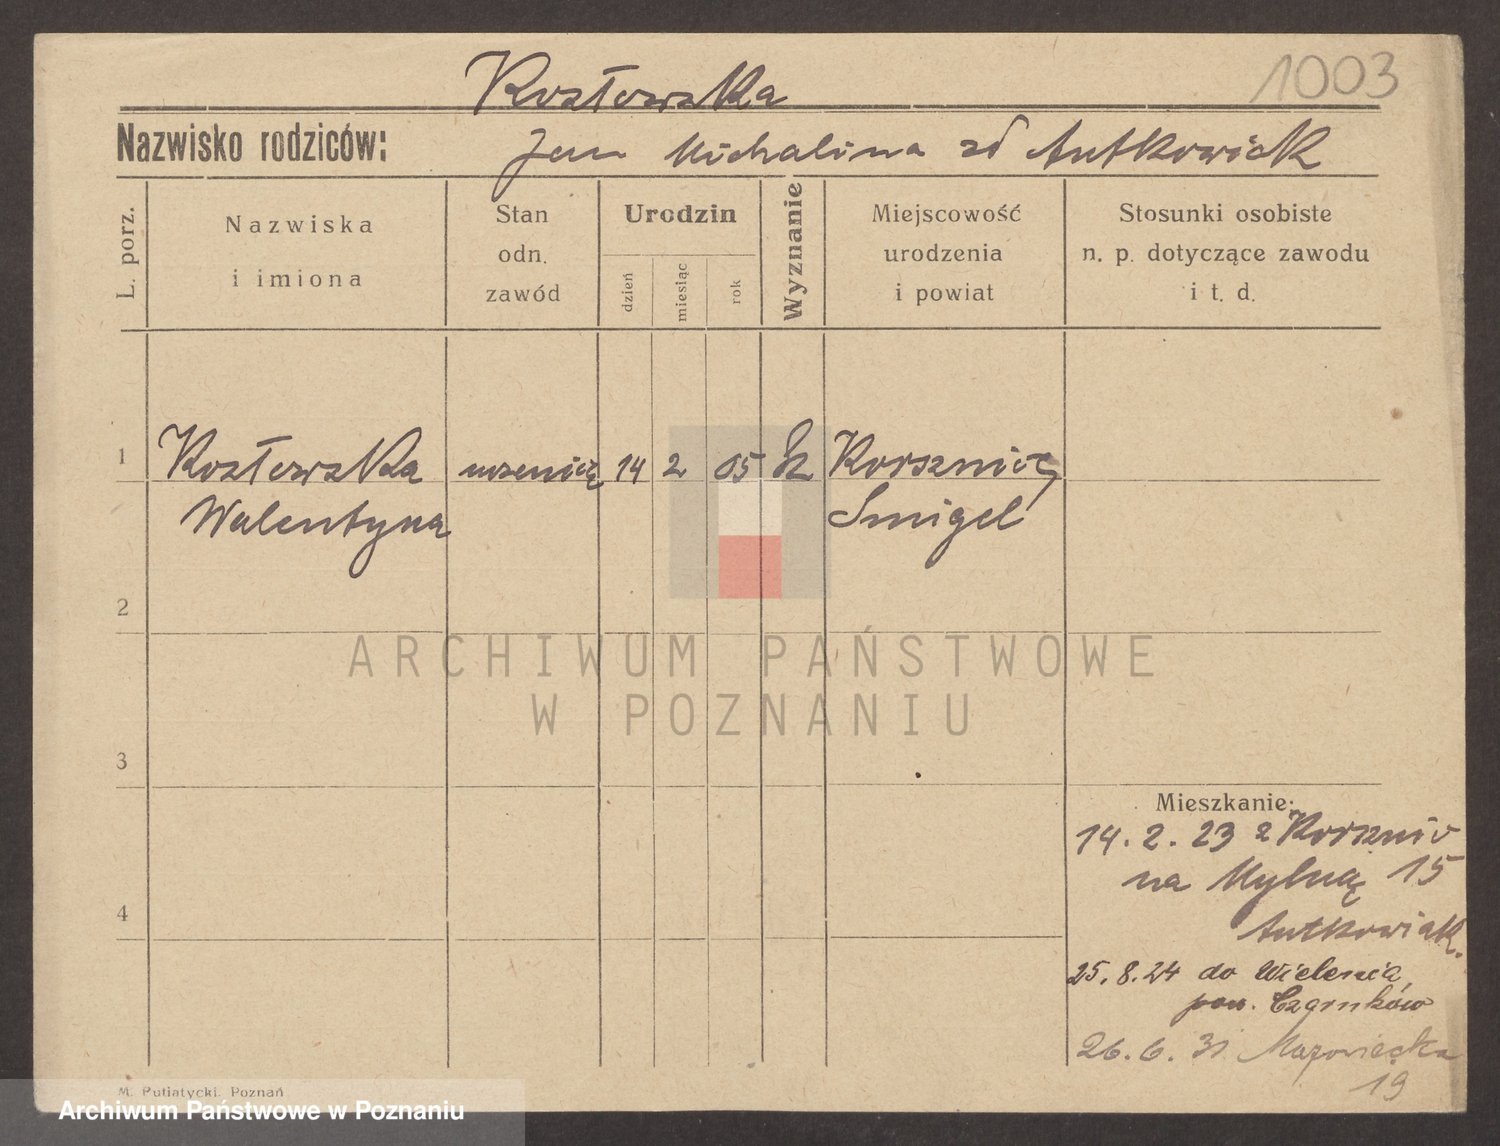 1003
Kozłowska
Nazwisko rodziców: Jan Michalina zd Antkowiak
L. porz.
Nazwiska
i imiona
Stan
odn.
zawód
Urodzin
dzień
miesiąc
rok
Wyznanie
Miejscowość
urodzenia
i powiat
Stosunki osobiste
n. p. dotyczące zawodu
i t. d.
1 Kozłowska uczenica 14 2 05 Korsznice
Walentyna Smigel
2
3
4
Mieszkanie:
14. 2. 23 z Korsznic
na Mylną 15
Antkowiak.
25. 8. 24 do Wielenia
pow. Czarnków
26. 6. 31 Mazowiecka
19
M. Putiatycki. Poznań
ARCHIWUM PAŃSTWOWE
W POZNANIU
Archiwum Państwowe w Poznaniu